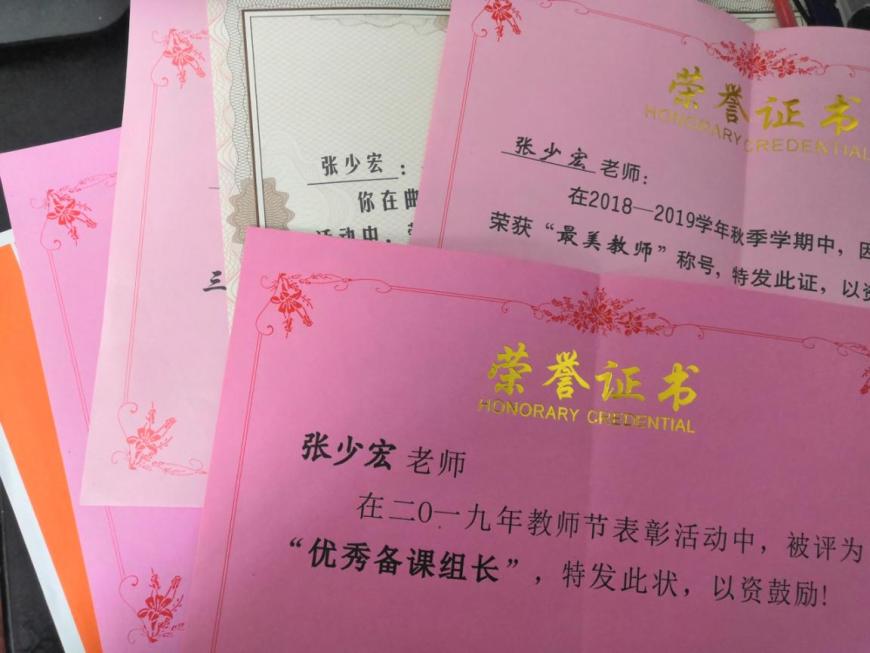 张少宏：
你在曲
活动中，
三
荣誉证书
HONORARY CREDENTIAL
张少宏老师：
在2018—2019学年秋季学期中，因
荣获“最美教师”称号，特发此证，以资
荣誉证书
HONORARY CREDENTIAL
张少宏 老师
在二0一九年教师节表彰活动中，被评为
“优秀备课组长”，特发此状，以资鼓励!